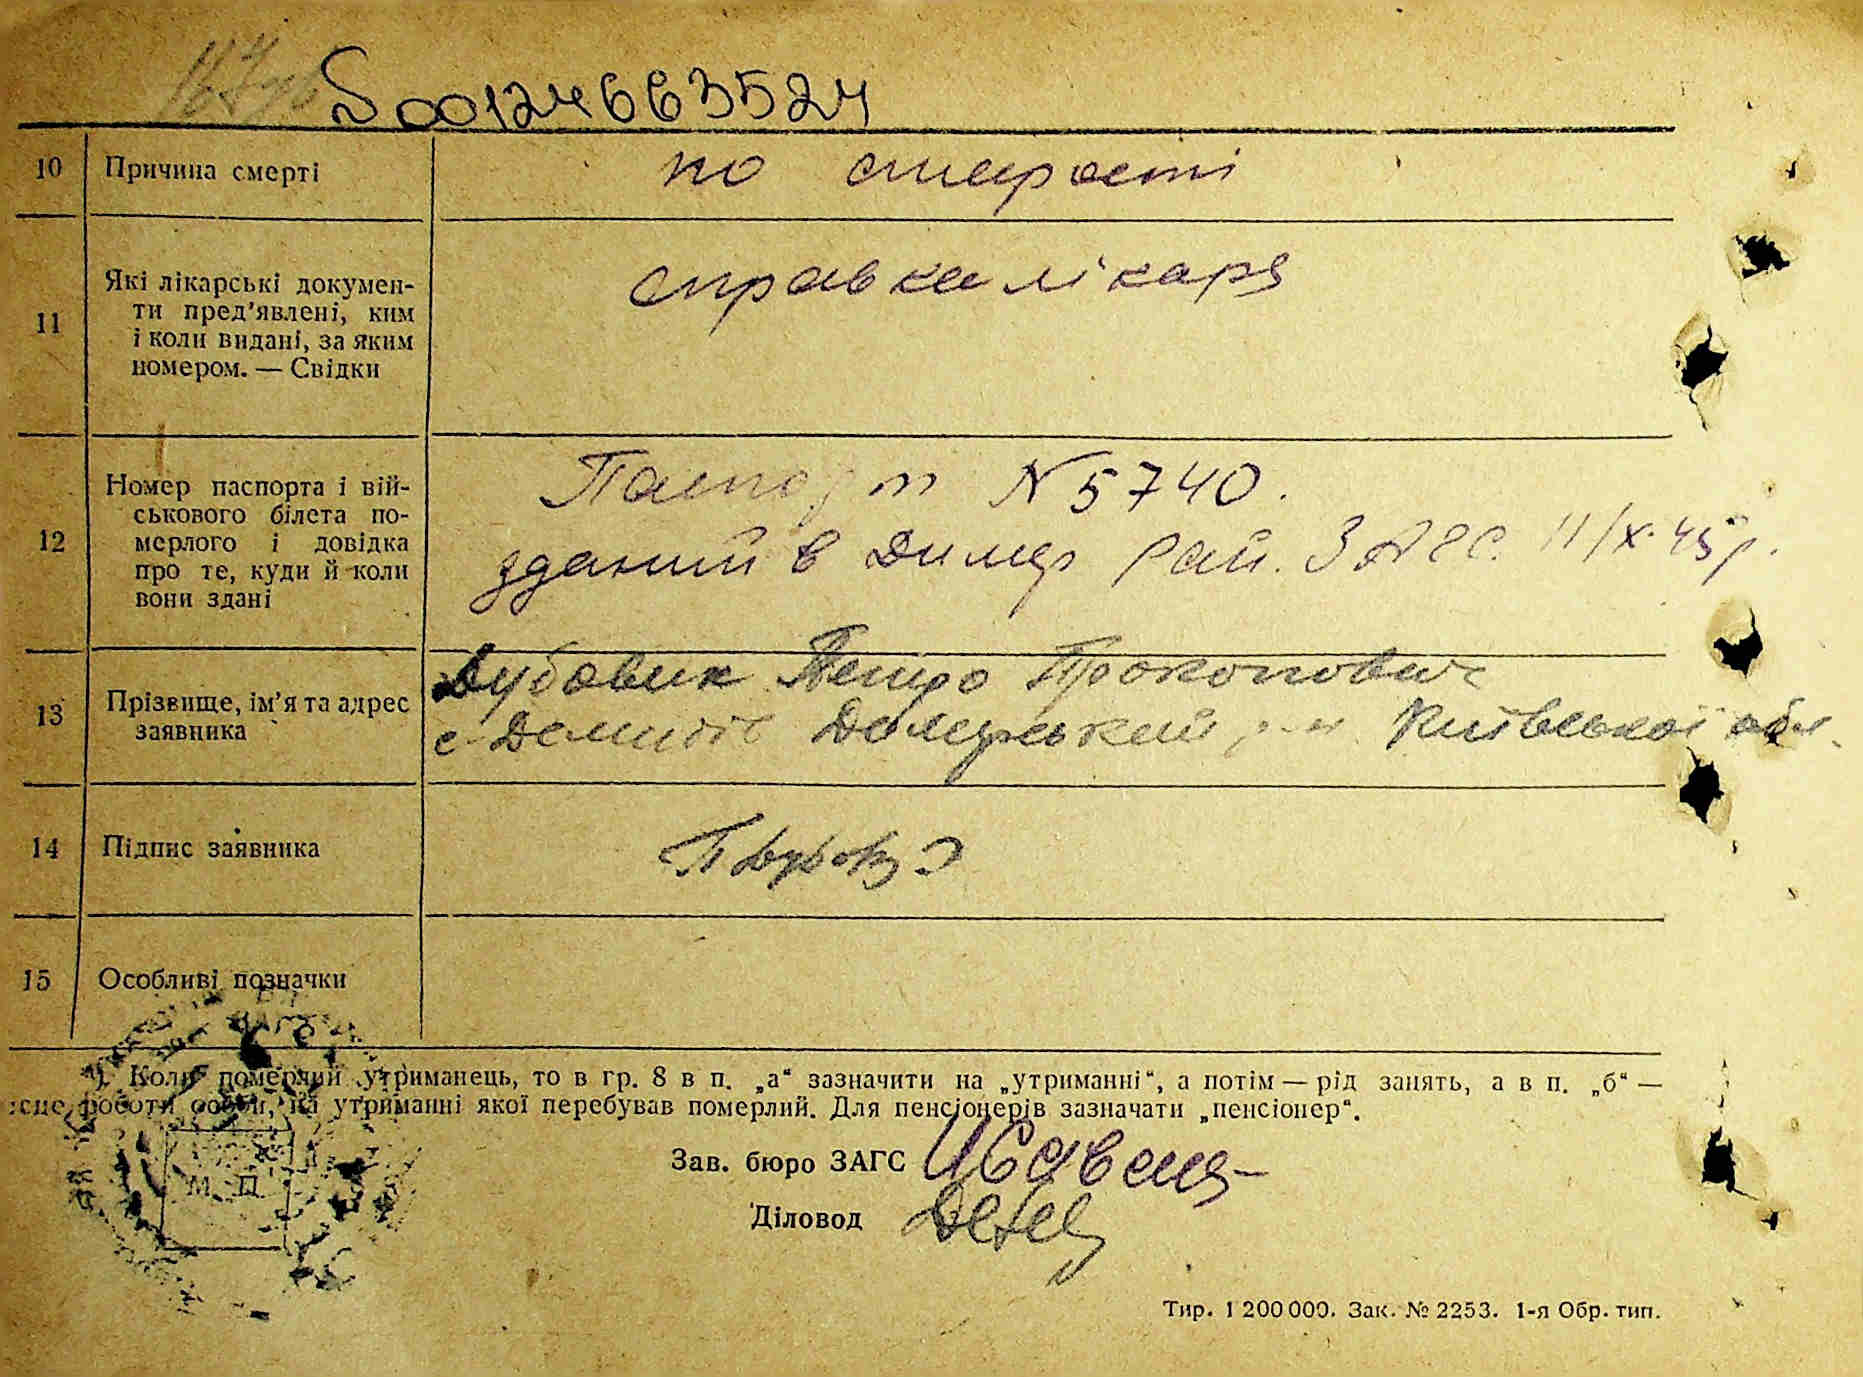 00124663524
10 Причина смерті по старості
11 Які лікарські докумен-
ти пред'явлені, ким
і коли видані, за яким
номером. — Свідки
справка лікаря
12 Номер паспорта і вій-
ськового білета по-
мерлого і довідка
про те, куди й коли
вони здані
Паспорт N 5740.
зданий в Димер Рай. ЗАГС. 11/X-45р.
13 Прізвище, ім'я та адрес
заявника
Дубовик Петро Прокопович
с Демидів Димерський р-н Київської обл.
14 Підпис заявника
15 Особливі позначки
Коли померлий утриманець, то в гр. 8 в п. „а“ зазначити на „утриманні“, а потім — рід занять, а в п. „б“ —
роботи особи, на утриманні якої перебував померлий. Для пенсіонерів зазначати „пенсіонер“.
М. П.
Зав. бюро ЗАГС
Діловод
Тир. 1 200 000. Зак. № 2253. 1-я Обр. тип.